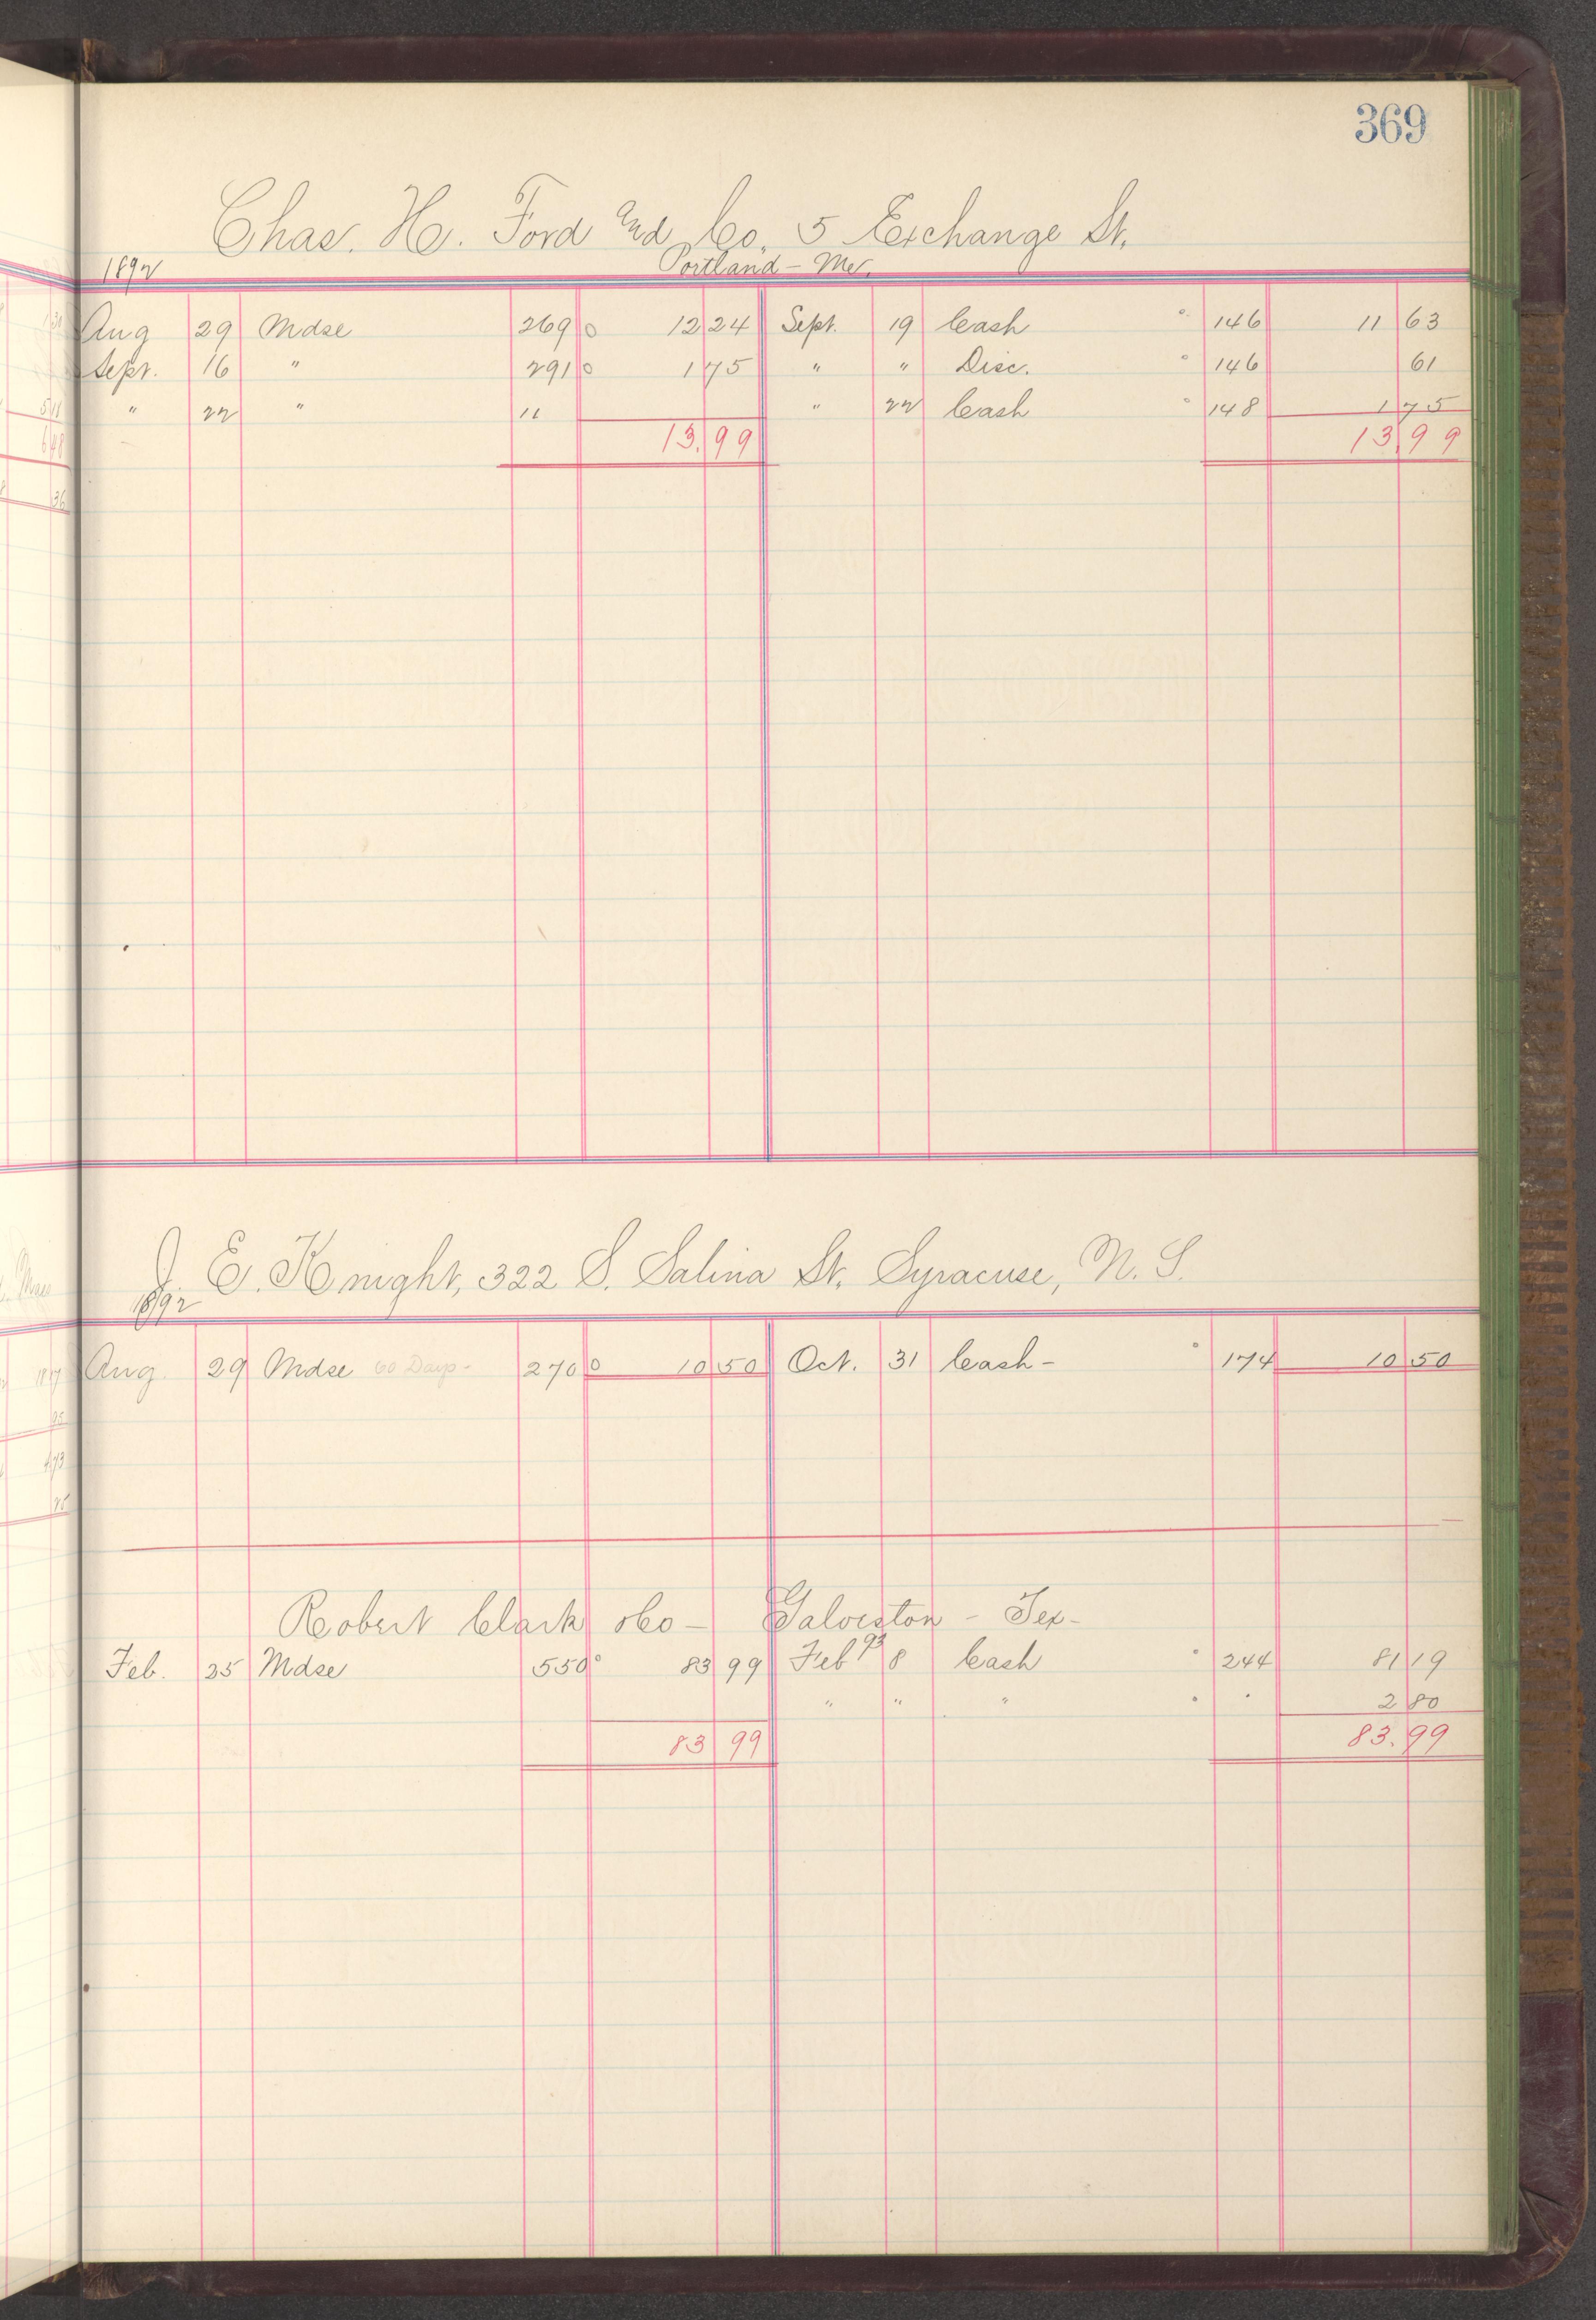 369
Chas. H. Ford and Co. 5 Exchange St.
1892 Portland - Me.
Aug 29 Mdse 269 0 12 24 Sept. 19 Cash 146 11 63
Sept. 16 " 291 0 1 75 " " Disc. 146 61
" 22 " 11 " 22 Cash 148 1 75
13.99 13.99
J. E. Knight, 322 S. Salina St. Syracuse, N. S.
1892
Aug. 29 Mdse 60 Days- 270 0 10 50 Oct. 31 Cash - 174 10 50
Robert Clark & Co - Galveston - Tex-
Feb. 25 Mdse 550 ° 83 99 Feb 93 8 Cash ° 244 81 19
" " " 2 80
83 99 83.99